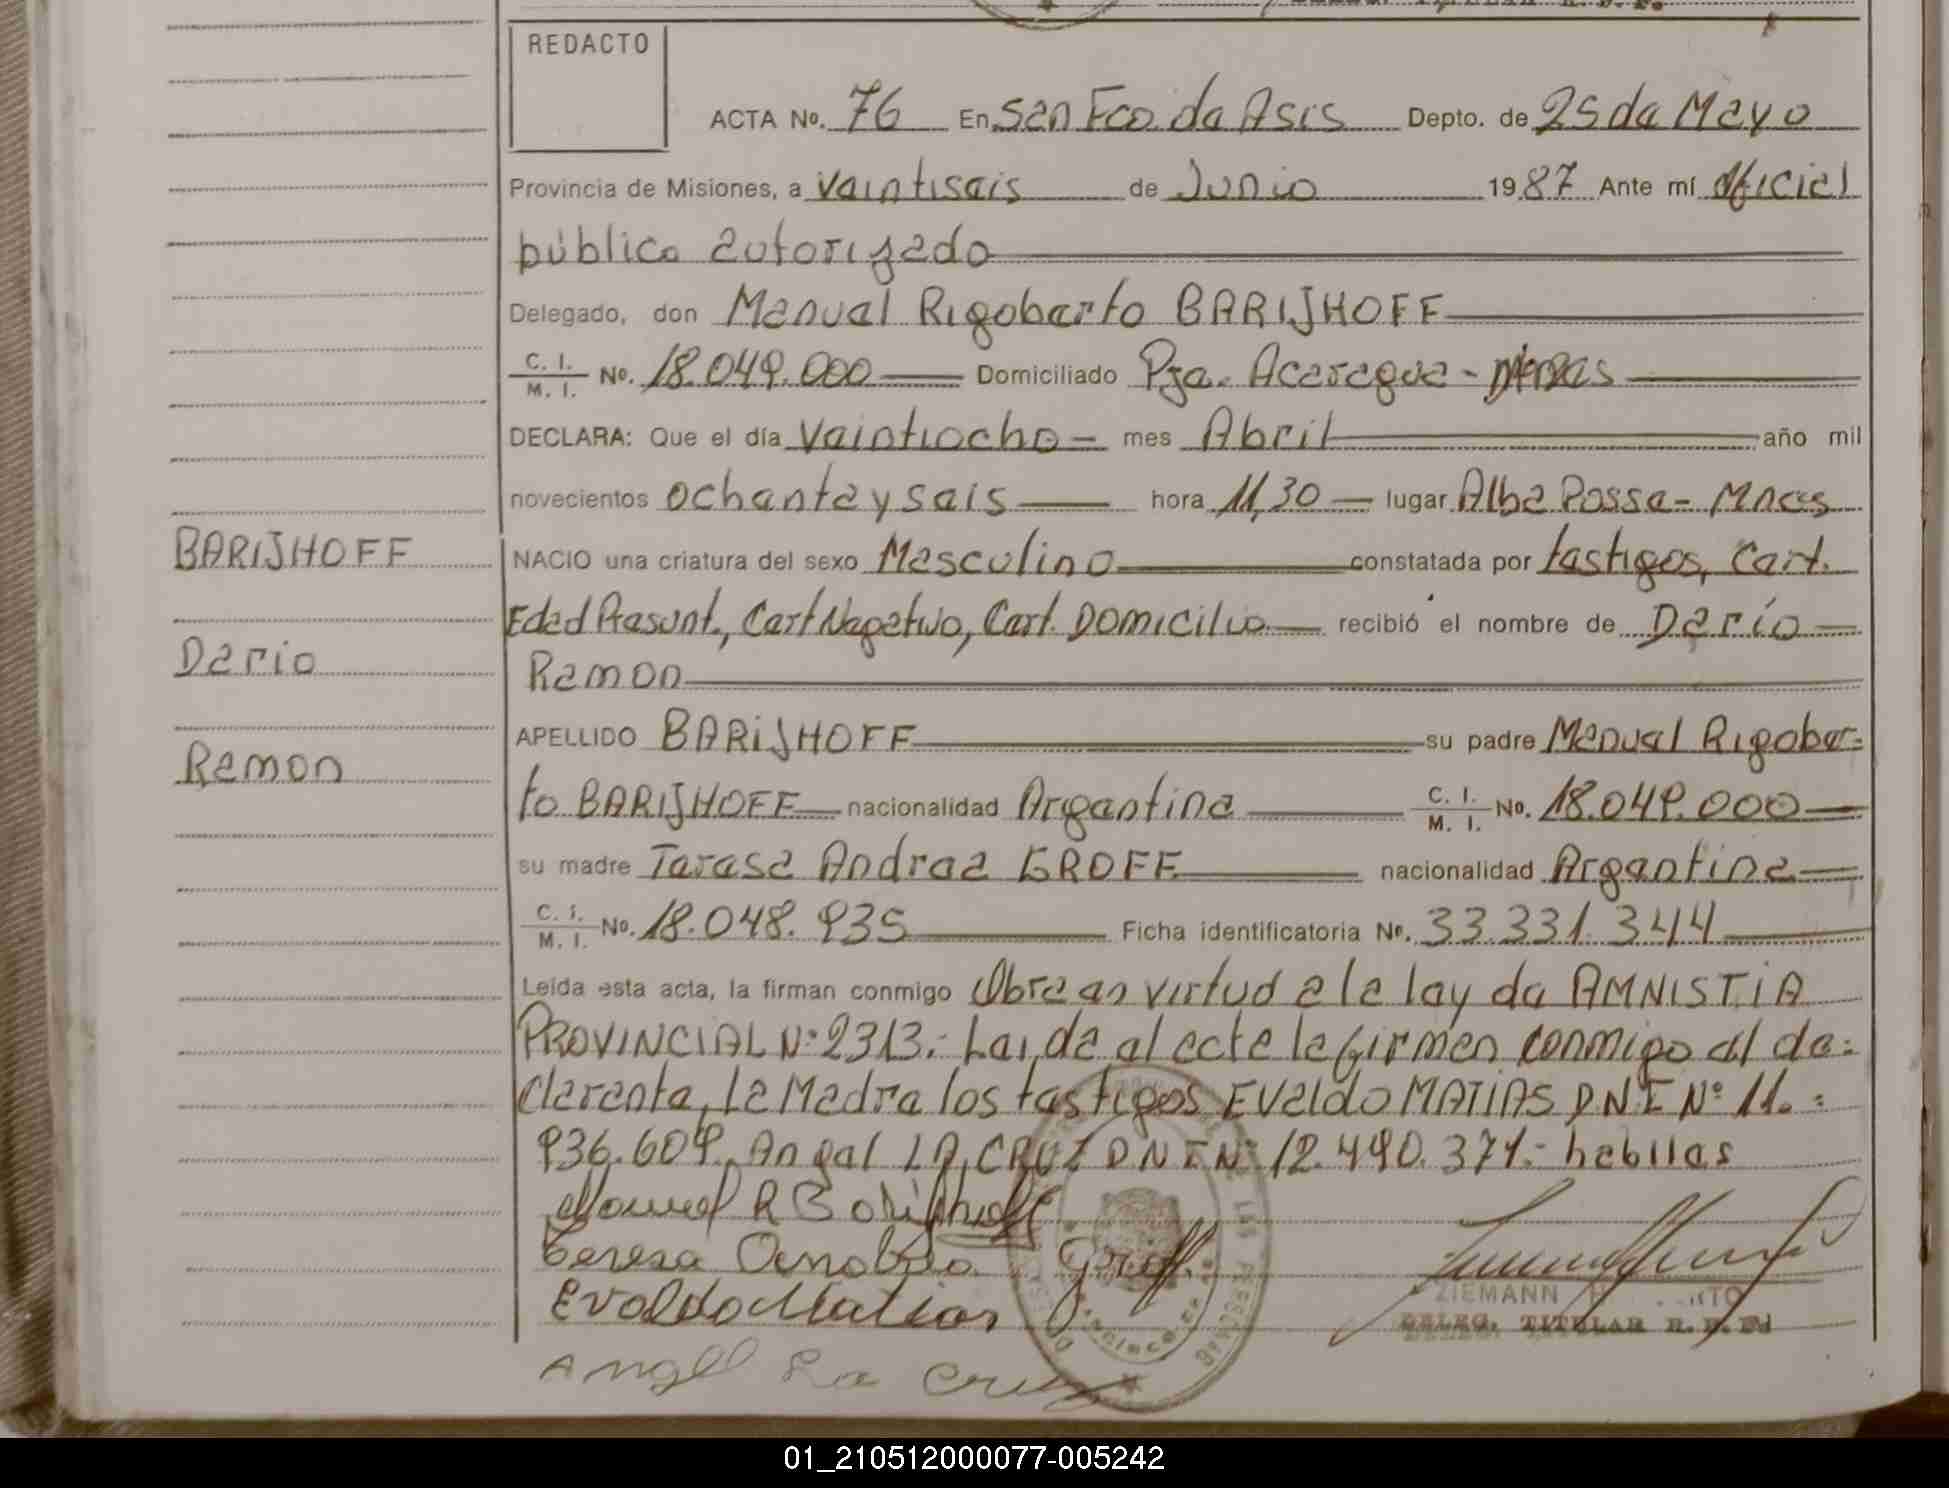 REDACTO
ACTA No. 76 En San Fco. de Asis Depto. de 25 de Mayo
Provincia de Misiones, a veintiseis de Junio 1987 Ante mí oficial
público autorizado
Delegado, don Manuel Rigoberto BARIJHOFF
C. I. / M. I. No. 18.049.000 Domiciliado Pje. Acaragua -
DECLARA: Que el día veintiocho - mes Abril año mil
novecientos ochenta y seis hora 11,30 - lugar Alba Posse - Mnes
NACIO una criatura del sexo Masculino constatada por testigos, Cert.
Edad Presunt., Cert Negativo, Cert. Domicilio recibió el nombre de Darío
Ramon
APELLIDO BARIJHOFF su padre Manuel Rigober=
to BARIJHOFF nacionalidad Argentina C. I. / M. I. No. 18.049.000
su madre Teresa Andrea GROFF nacionalidad Argentina
C. I. / M. I. No. 18.048.935 Ficha identificatoria No. 33.331.344
Leída esta acta, la firman conmigo Obra en virtud a la ley de AMNISTIA
PROVINCIAL Nº 2313.- Leida el acta la firman conmigo el de=
clarente, la Madre los testigos Evaldo MATIAS DNI Nº 11.=
936.609, Angel LA CRUZ DNI Nº 12.490.371.- habiles
Manuel R Barijhoff
Teresa Groff
Evaldo Matias
Angel La Cruz
ZIEMANN
DELEG. TITULAR R. P. P.
BARIJHOFF
Dario
Ramon
01_210512000077-005242